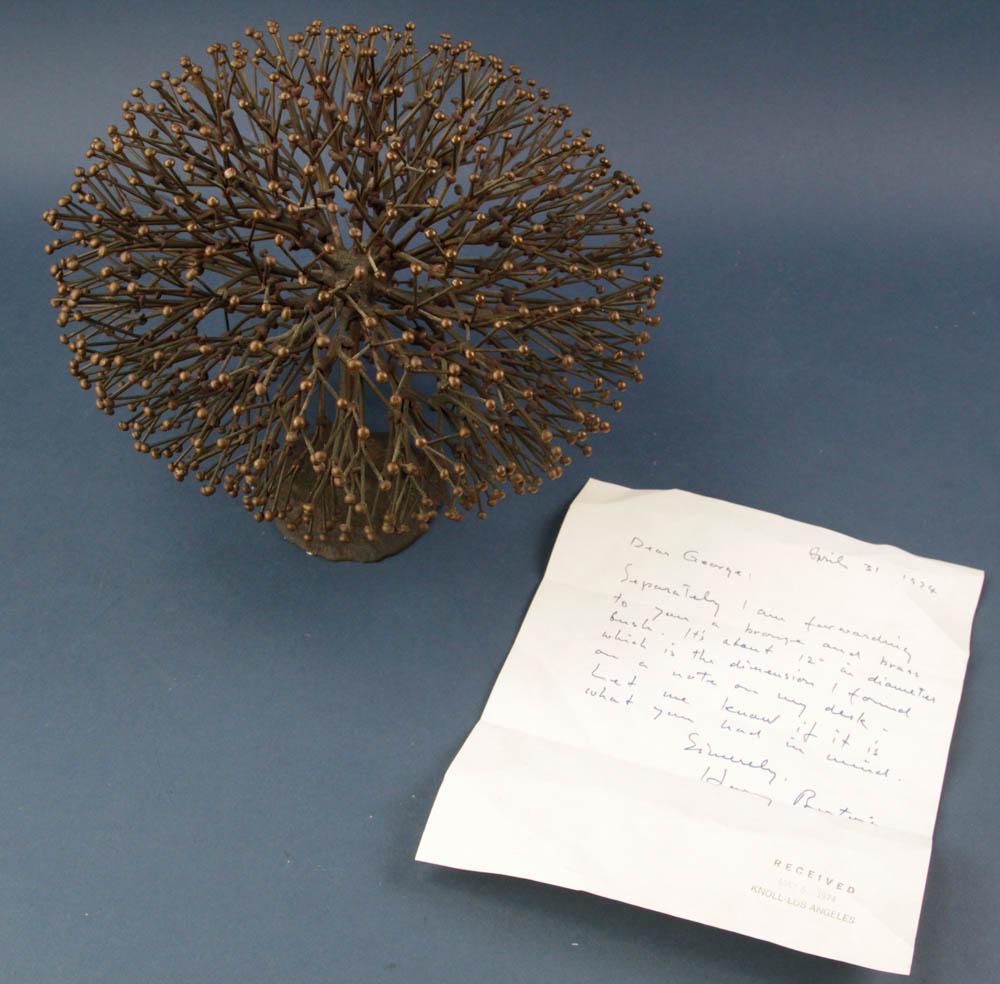 April 31 1974
Dear George:
Separately I am forwarding
to you a bronze and brass
bush. It's about 12" in diameter
which is the dimension I found
on a note on my desk -
Let me know if it is
what you had in mind.
Sincerely,
Harry Bertoia
RECEIVED
1974
KNOLL-LOS ANGELES